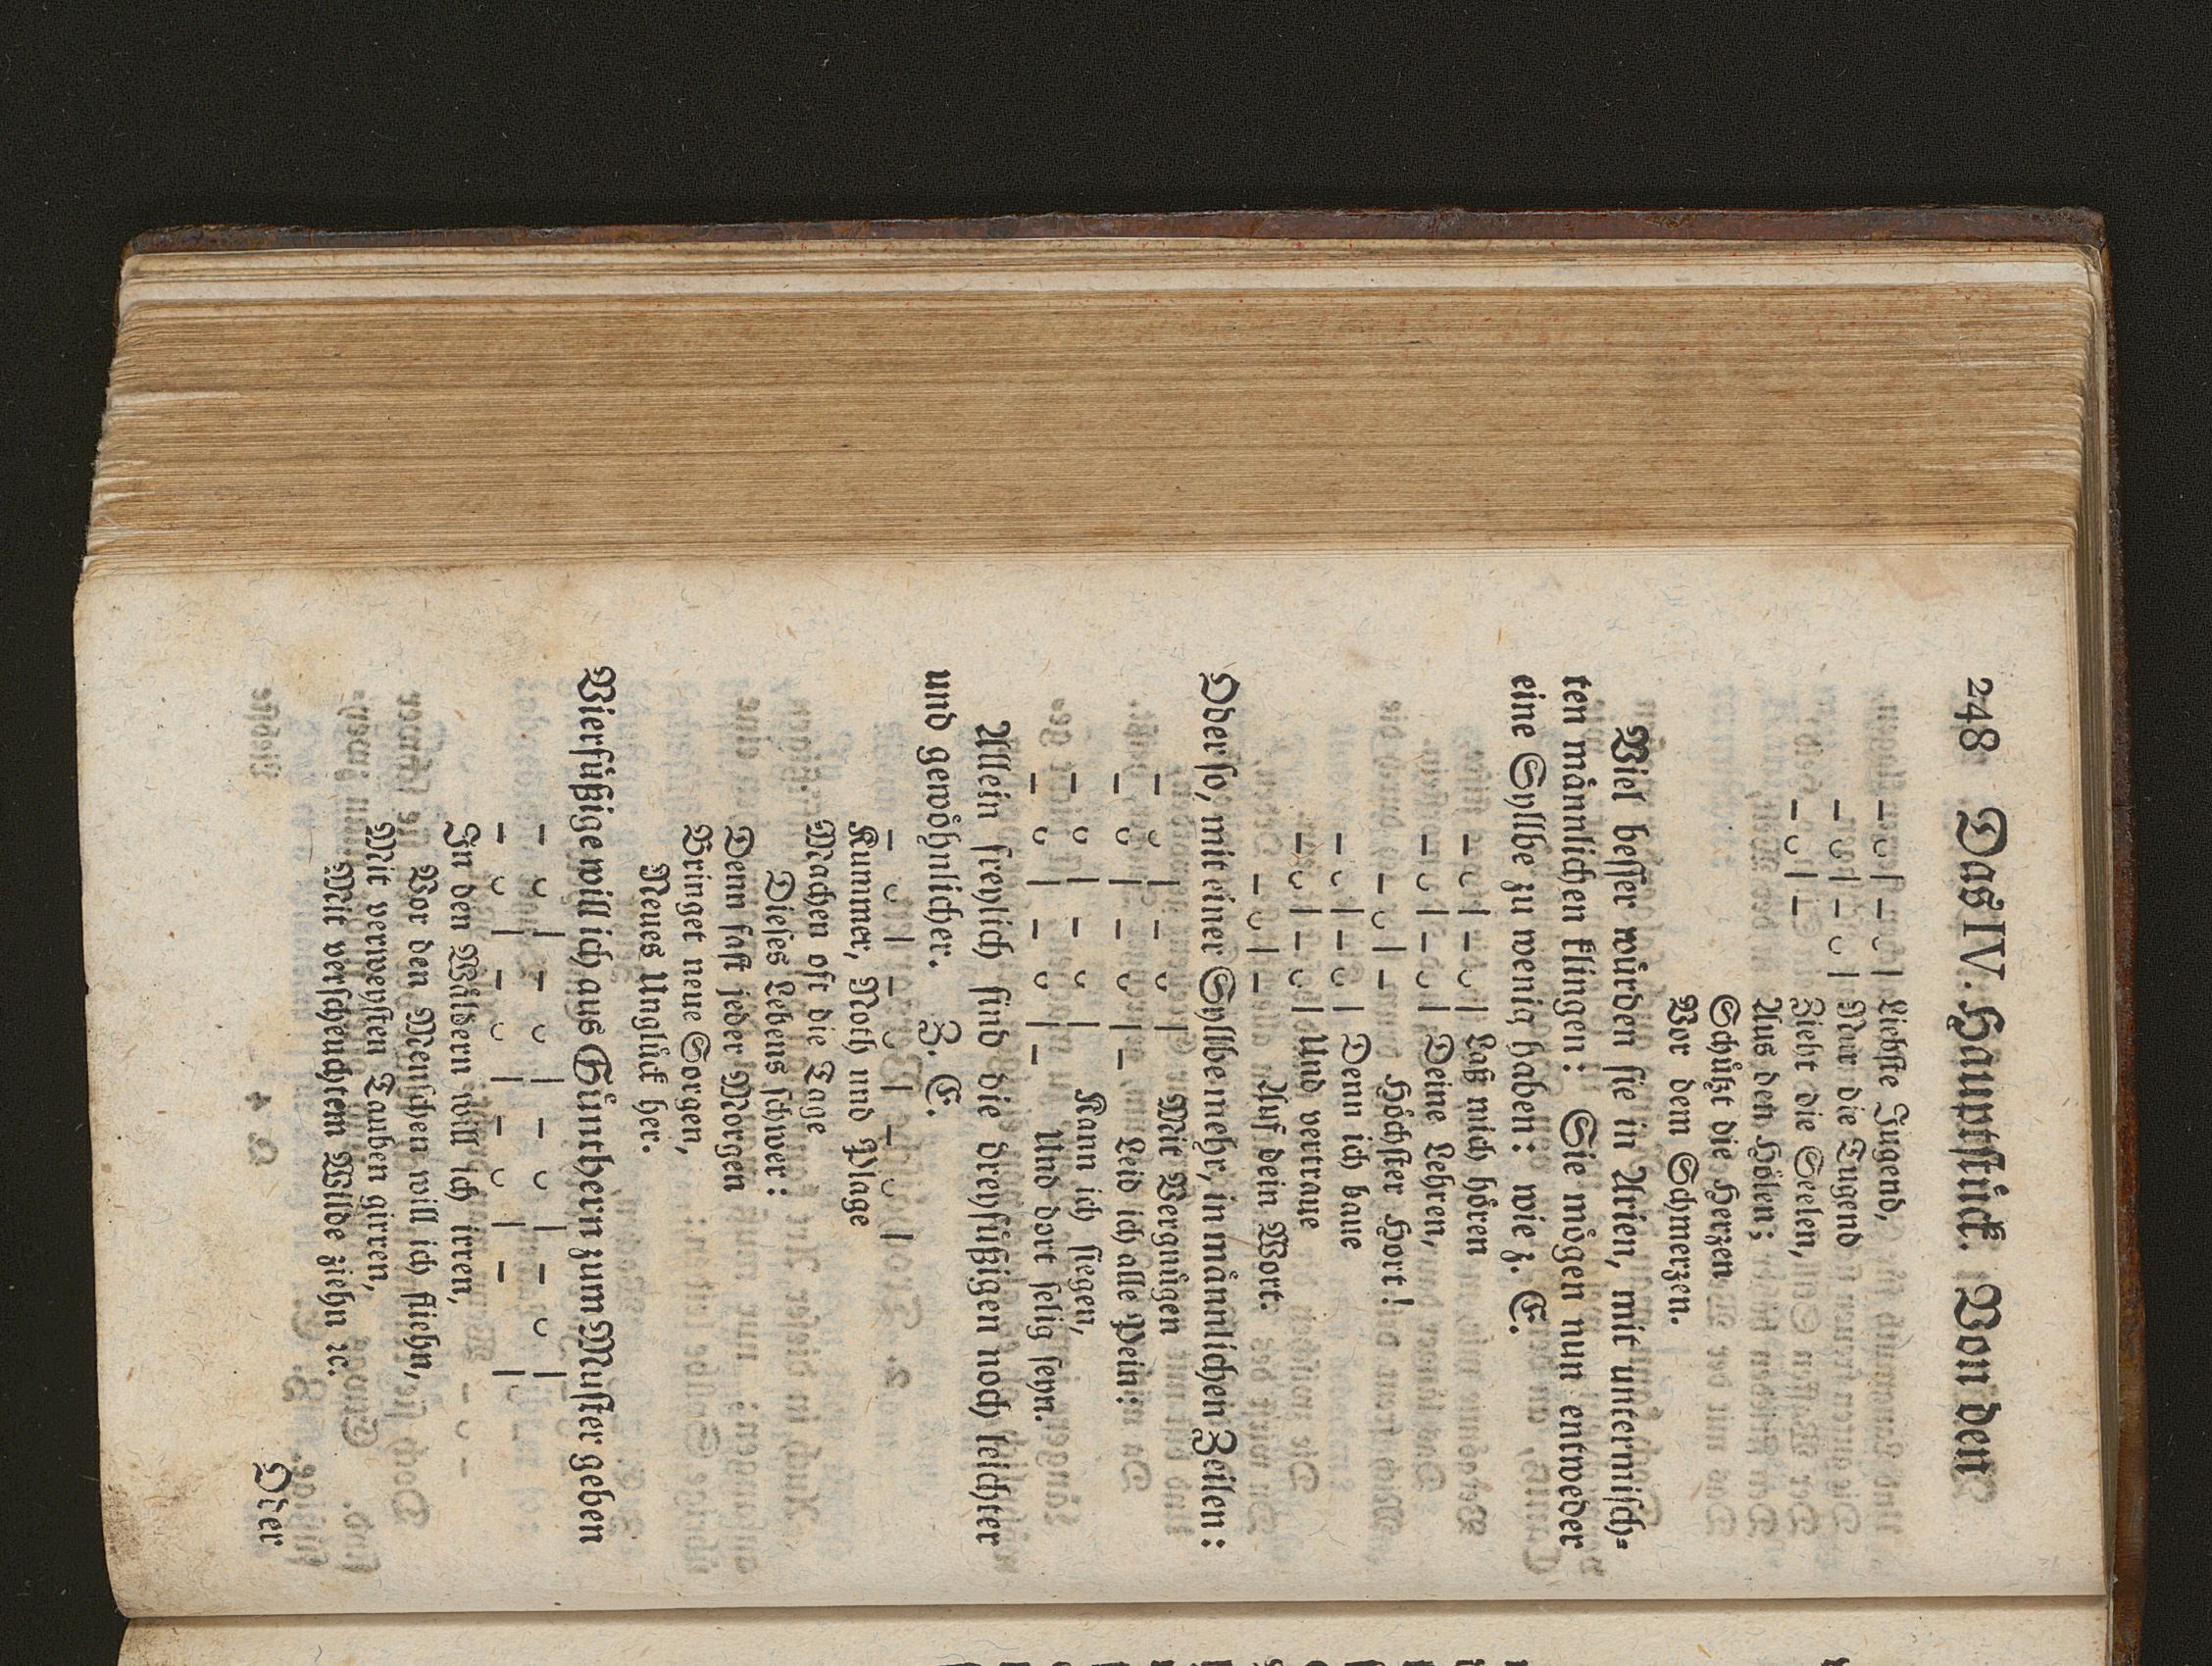 248 Das IV. Hauptstück. Von den
– ᴗ | – ᴗ | Liebste Jugend,
– ᴗ | – ᴗ | Nur die Tugend
– ᴗ | – Zieht die Seelen,
Aus den Hölen;
Schützt die Herzen
Vor dem Schmerzen.
Viel besser würden sie in Arien, mit untermisch-
ten männlichen klingen: Sie mögen nun entweder
eine Syllbe zu wenig haben: wie z. E.
– ᴗ | – ᴗ | Laß mich hören
– ᴗ | – ᴗ | Deine Lehren,
– ᴗ | – Höchster Hort!
– ᴗ | – ᴗ | Denn ich baue
– ᴗ | – ᴗ | Und vertraue
– ᴗ | – Auf dein Wort.
Oder so, mit einer Syllbe mehr, in männlichen Zeilen:
– ᴗ | – ᴗ | Mit Vergnügen
– ᴗ | – ᴗ | – Leid ich alle Pein:
– ᴗ | – ᴗ | Kann ich siegen,
– ᴗ | – ᴗ | – Und dort selig seyn.
Allein freylich sind die dreyfüßigen noch leichter
und gewöhnlicher. Z. E.
– ᴗ | – ᴗ | – ᴗ |
Kummer, Noth und Plage
Machen oft die Tage
Dieses Lebens schwer:
Denn fast jeder Morgen
Bringet neue Sorgen,
Neues Unglück her.
Vierfüßige will ich aus Günthern zum Muster geben
– ᴗ | – ᴗ | – ᴗ | – ᴗ |
– ᴗ | – ᴗ | – ᴗ | – |
In den Wäldern will ich irren,
Vor den Menschen will ich fliehn,
Mit verwaysten Tauben girren,
Mit verscheuchtem Wilde ziehn ꝛc.
Oder